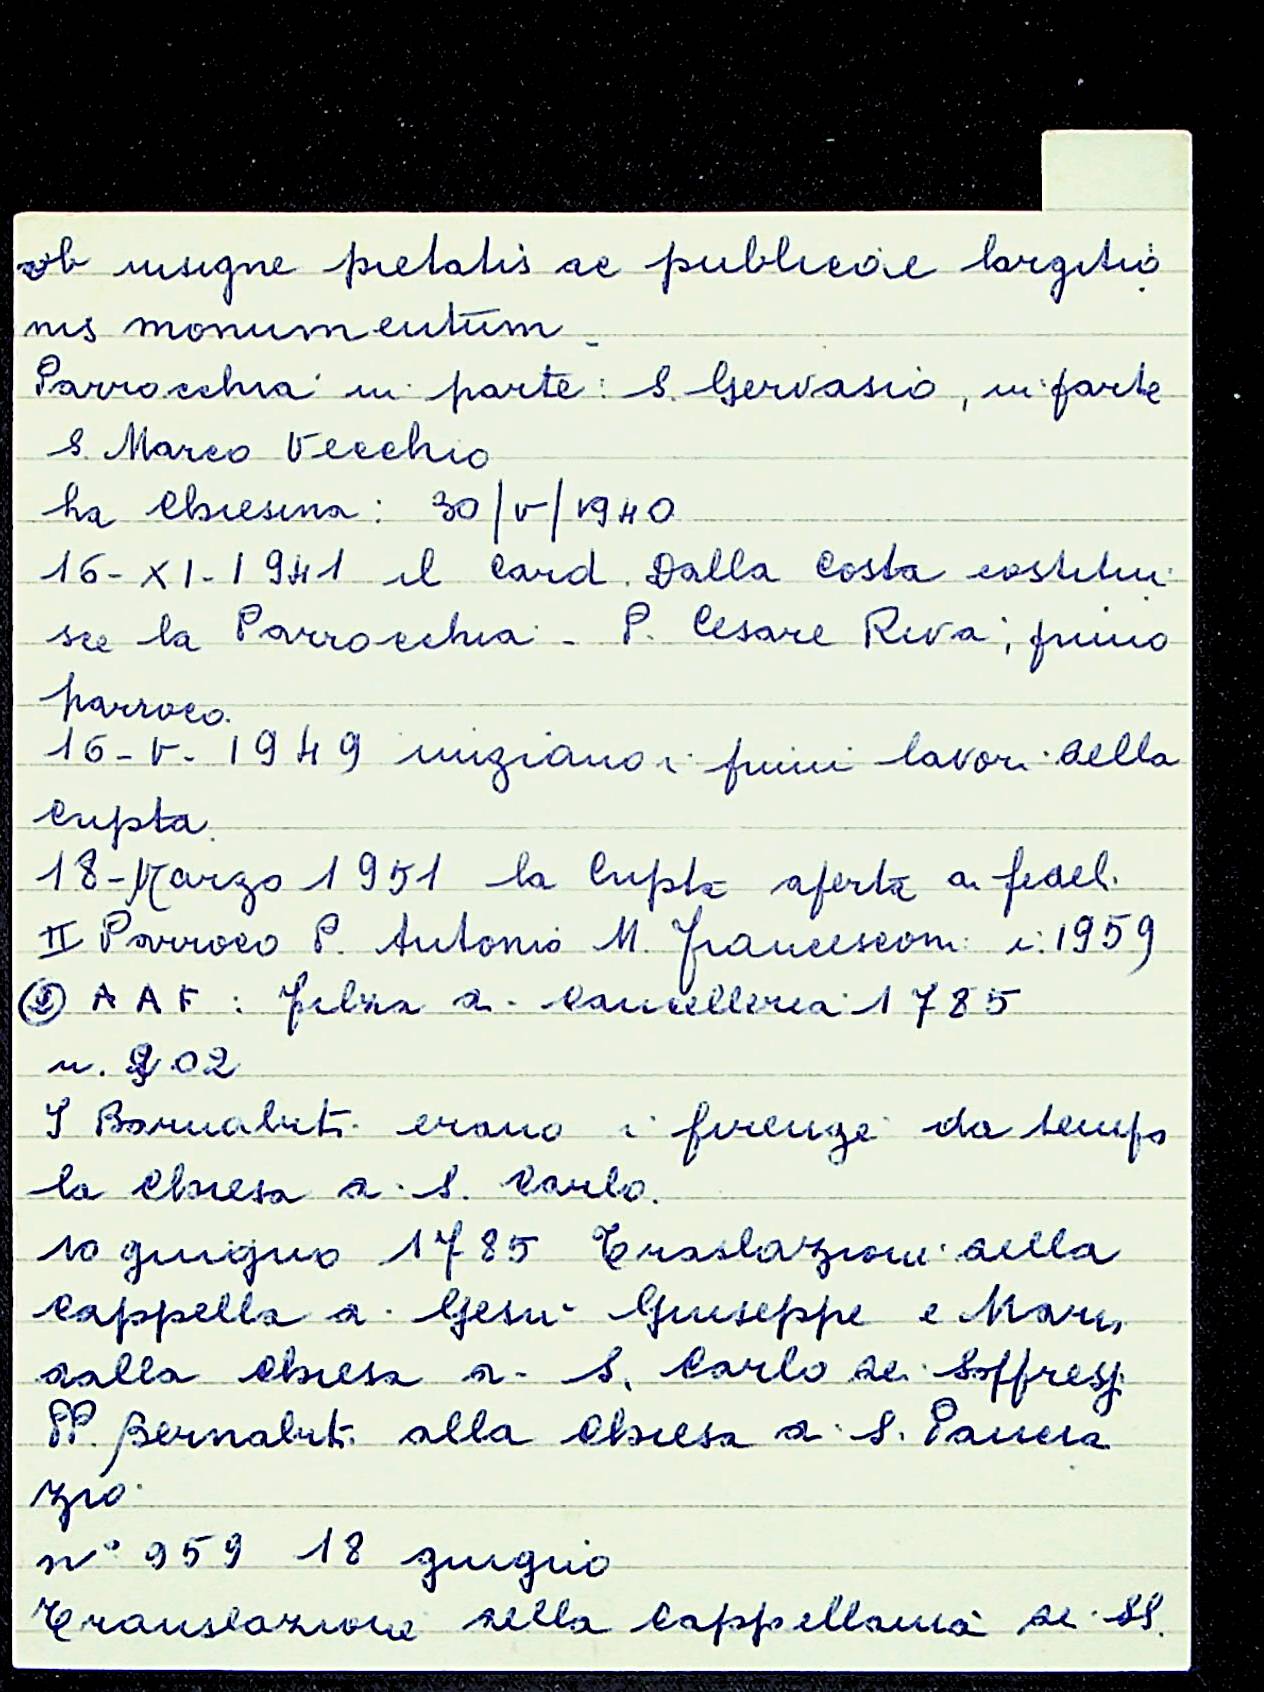 ob insigne pietatis ac publicae largitio
nis monumentum
Parrocchia in parte: S. Gervasio, in parte
S. Marco Vecchio
La Chiesina: 30/V/1940
16-XI-1941 il Card. Dalla Costa costitui
sce la Parrocchia - P. Cesare Riva, primo
parroco.
16-V-1949 iniziano i primi lavori della
Cripta.
18-Marzo 1951 la Cripta aperta ai fedeli
II Parroco P. Antonio M. Francesconi 1959
AAF: Filza di Cancelleria 1785
n. 202
I Barnabiti erano i Firenze da tempo
la Chiesa di S. Carlo.
10 giugno 1785 Traslazione della
Cappella di Gesù Giuseppe e Mar
dalla Chiesa di S. Carlo dei Soppressi
PP. Bernabiti alla Chiesa di S. Pancra
zio
n° 959 18 giugno
Translazione della Cappellania dei SS.